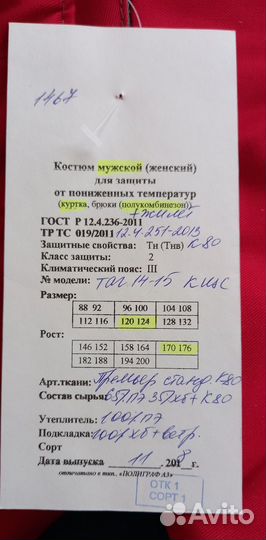 1467
Костюм мужской (женский)
для защиты
от пониженных температур
(куртка, брюки (полукомбинезон))
+ жилет
ГОСТ Р 12.4.236-2011
ТР ТС 019/2011 12.4.251-2013
Защитные свойства: Тн (Тнв) К-80
Класс защиты: 2
Климатический пояс: III
№ модели: 14-15
Размер:
88 92 96 100 104 108
112 116 120 124 128 132
Рост:
146 152 158 164 170 176
182 188 194 200
Арт.ткани: Премьер станд. К80
Состав сырья: 65%ПЭ 35%хб + К80
Утеплитель: 100%ПЭ
Подкладка: 100%хб + ветр.
Сорт
Дата выпуска 11 2018 г.
отпечатано в тип. «ПОЛИГРАФ АЗ»
ОТК 1
СОРТ 1
Avito